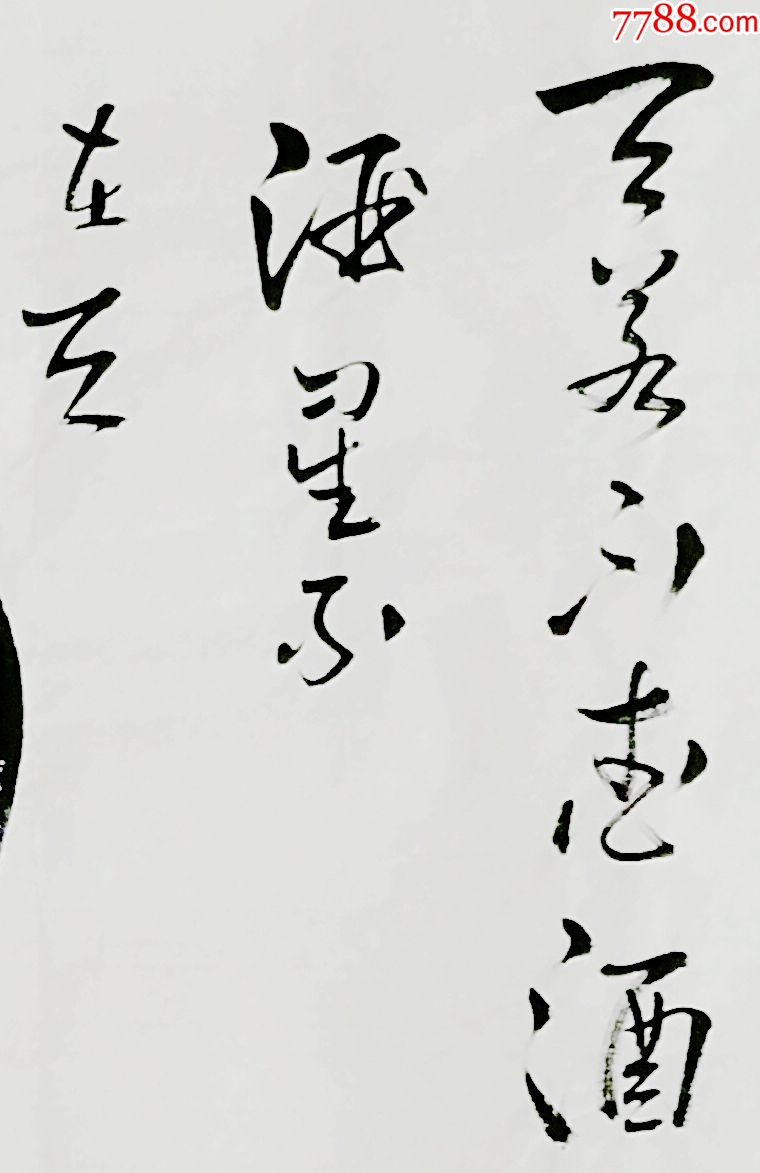 7788.com
天若不爱酒
酒星不
在天